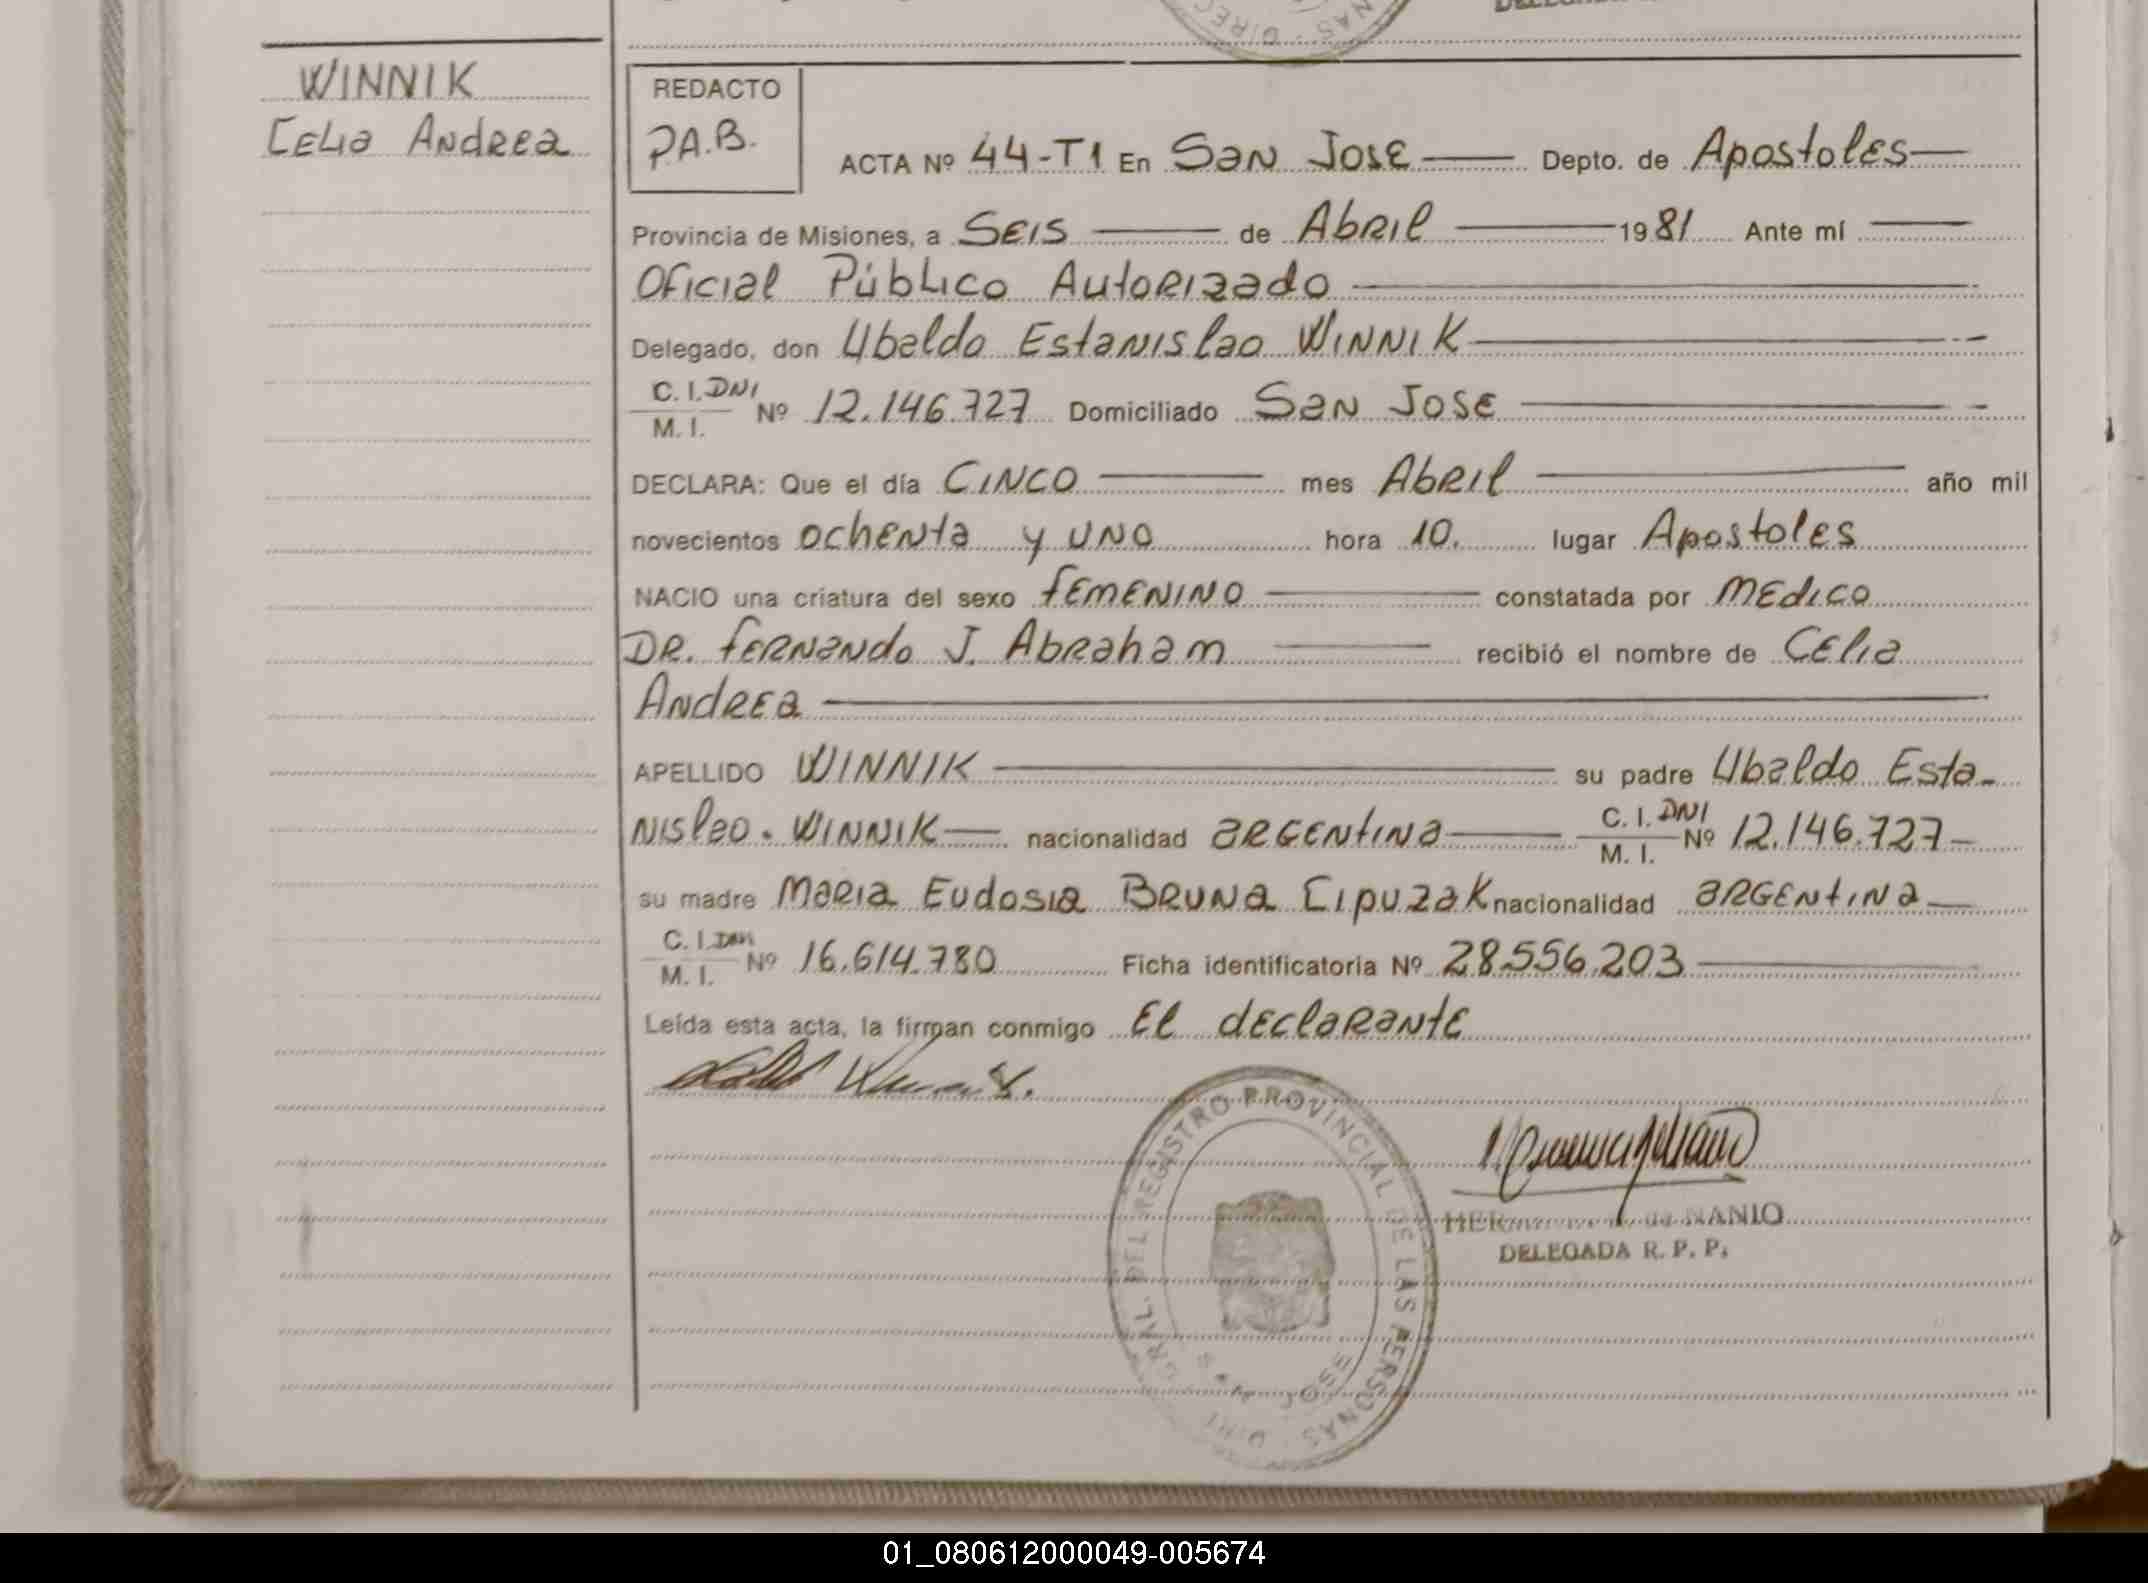 WINNIK
Celia Andrea
REDACTO
P.A.B.
ACTA Nº 44-T1 En San Jose Depto. de Apostoles
Provincia de Misiones, a Seis de Abril 1981 Ante mí
Oficial Público Autorizado
Delegado, don Ubaldo Estanislao WINNIK
C. I. DNI
M. I. Nº 12.146.727 Domiciliado San Jose
DECLARA: Que el día Cinco mes Abril año mil
novecientos ochenta y uno hora 10. lugar Apostoles
NACIO una criatura del sexo femenino constatada por medico
DR. Fernando J. Abraham recibió el nombre de Celia
Andrea
APELLIDO WINNIK su padre Ubaldo Esta-
nislao. WINNIK nacionalidad argentina C. I. DNI
M. I. Nº 12.146.727
su madre Maria Eudosia Bruna Cipuzak nacionalidad argentina
C. I. DNI
M. I. Nº 16.614.780 Ficha identificatoria Nº 28.556.203
Leída esta acta, la firman conmigo El declarante
GRAL. DEL REGISTRO PROVINCIAL DE LAS PERSONAS
SAN JOSE
de NANIO
DELEGADA R. P. P.
01_080612000049-005674